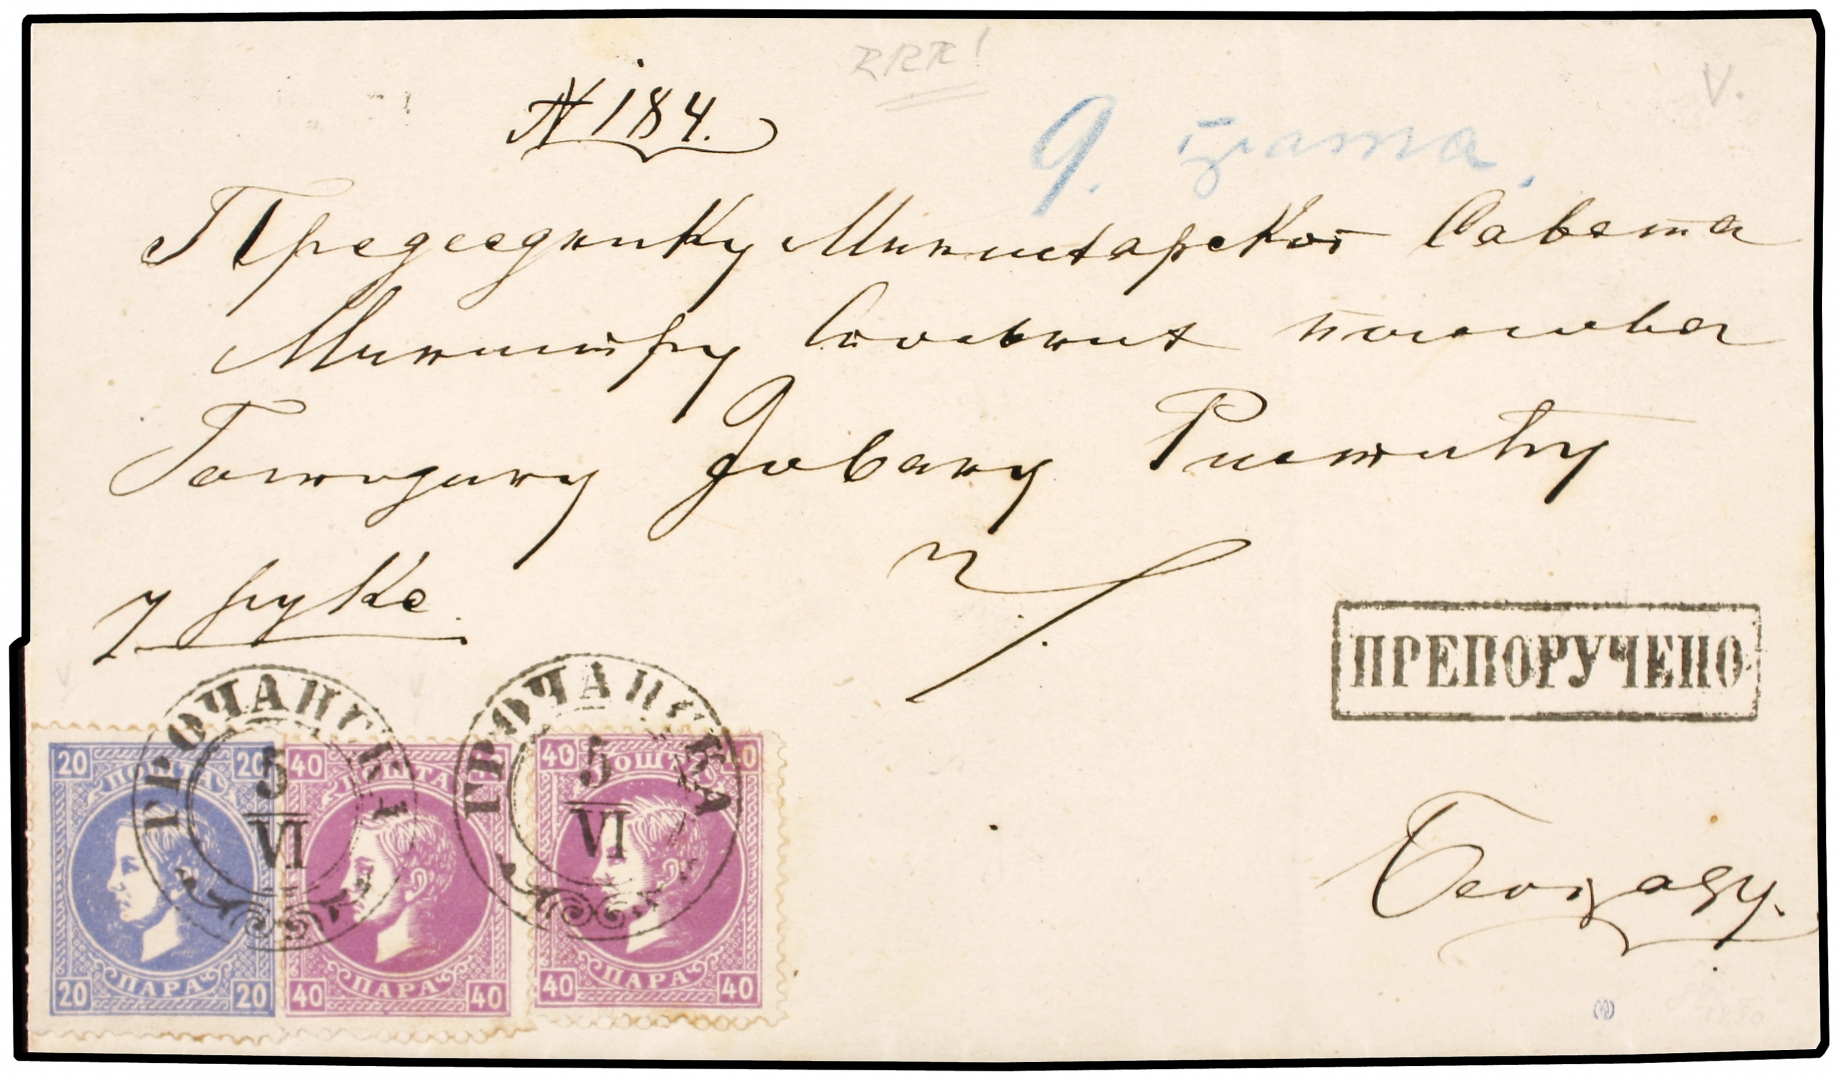 RRR!
V.
№ 184.
9. грата.
Председнику Министарског Савета
Министру Спољних послова
Господину Јовану Ристићу
у руке.
ПРЕПОРУЧЕНО
ГРОЧАНСКА 5 VI
ГРОЧАНСКА 5 VI
20 20 ПОШТА ПАРА 20 20
40 ПОШТА ПАРА 40 40
40 40 ПОШТА ПАРА 40 40
Београду.